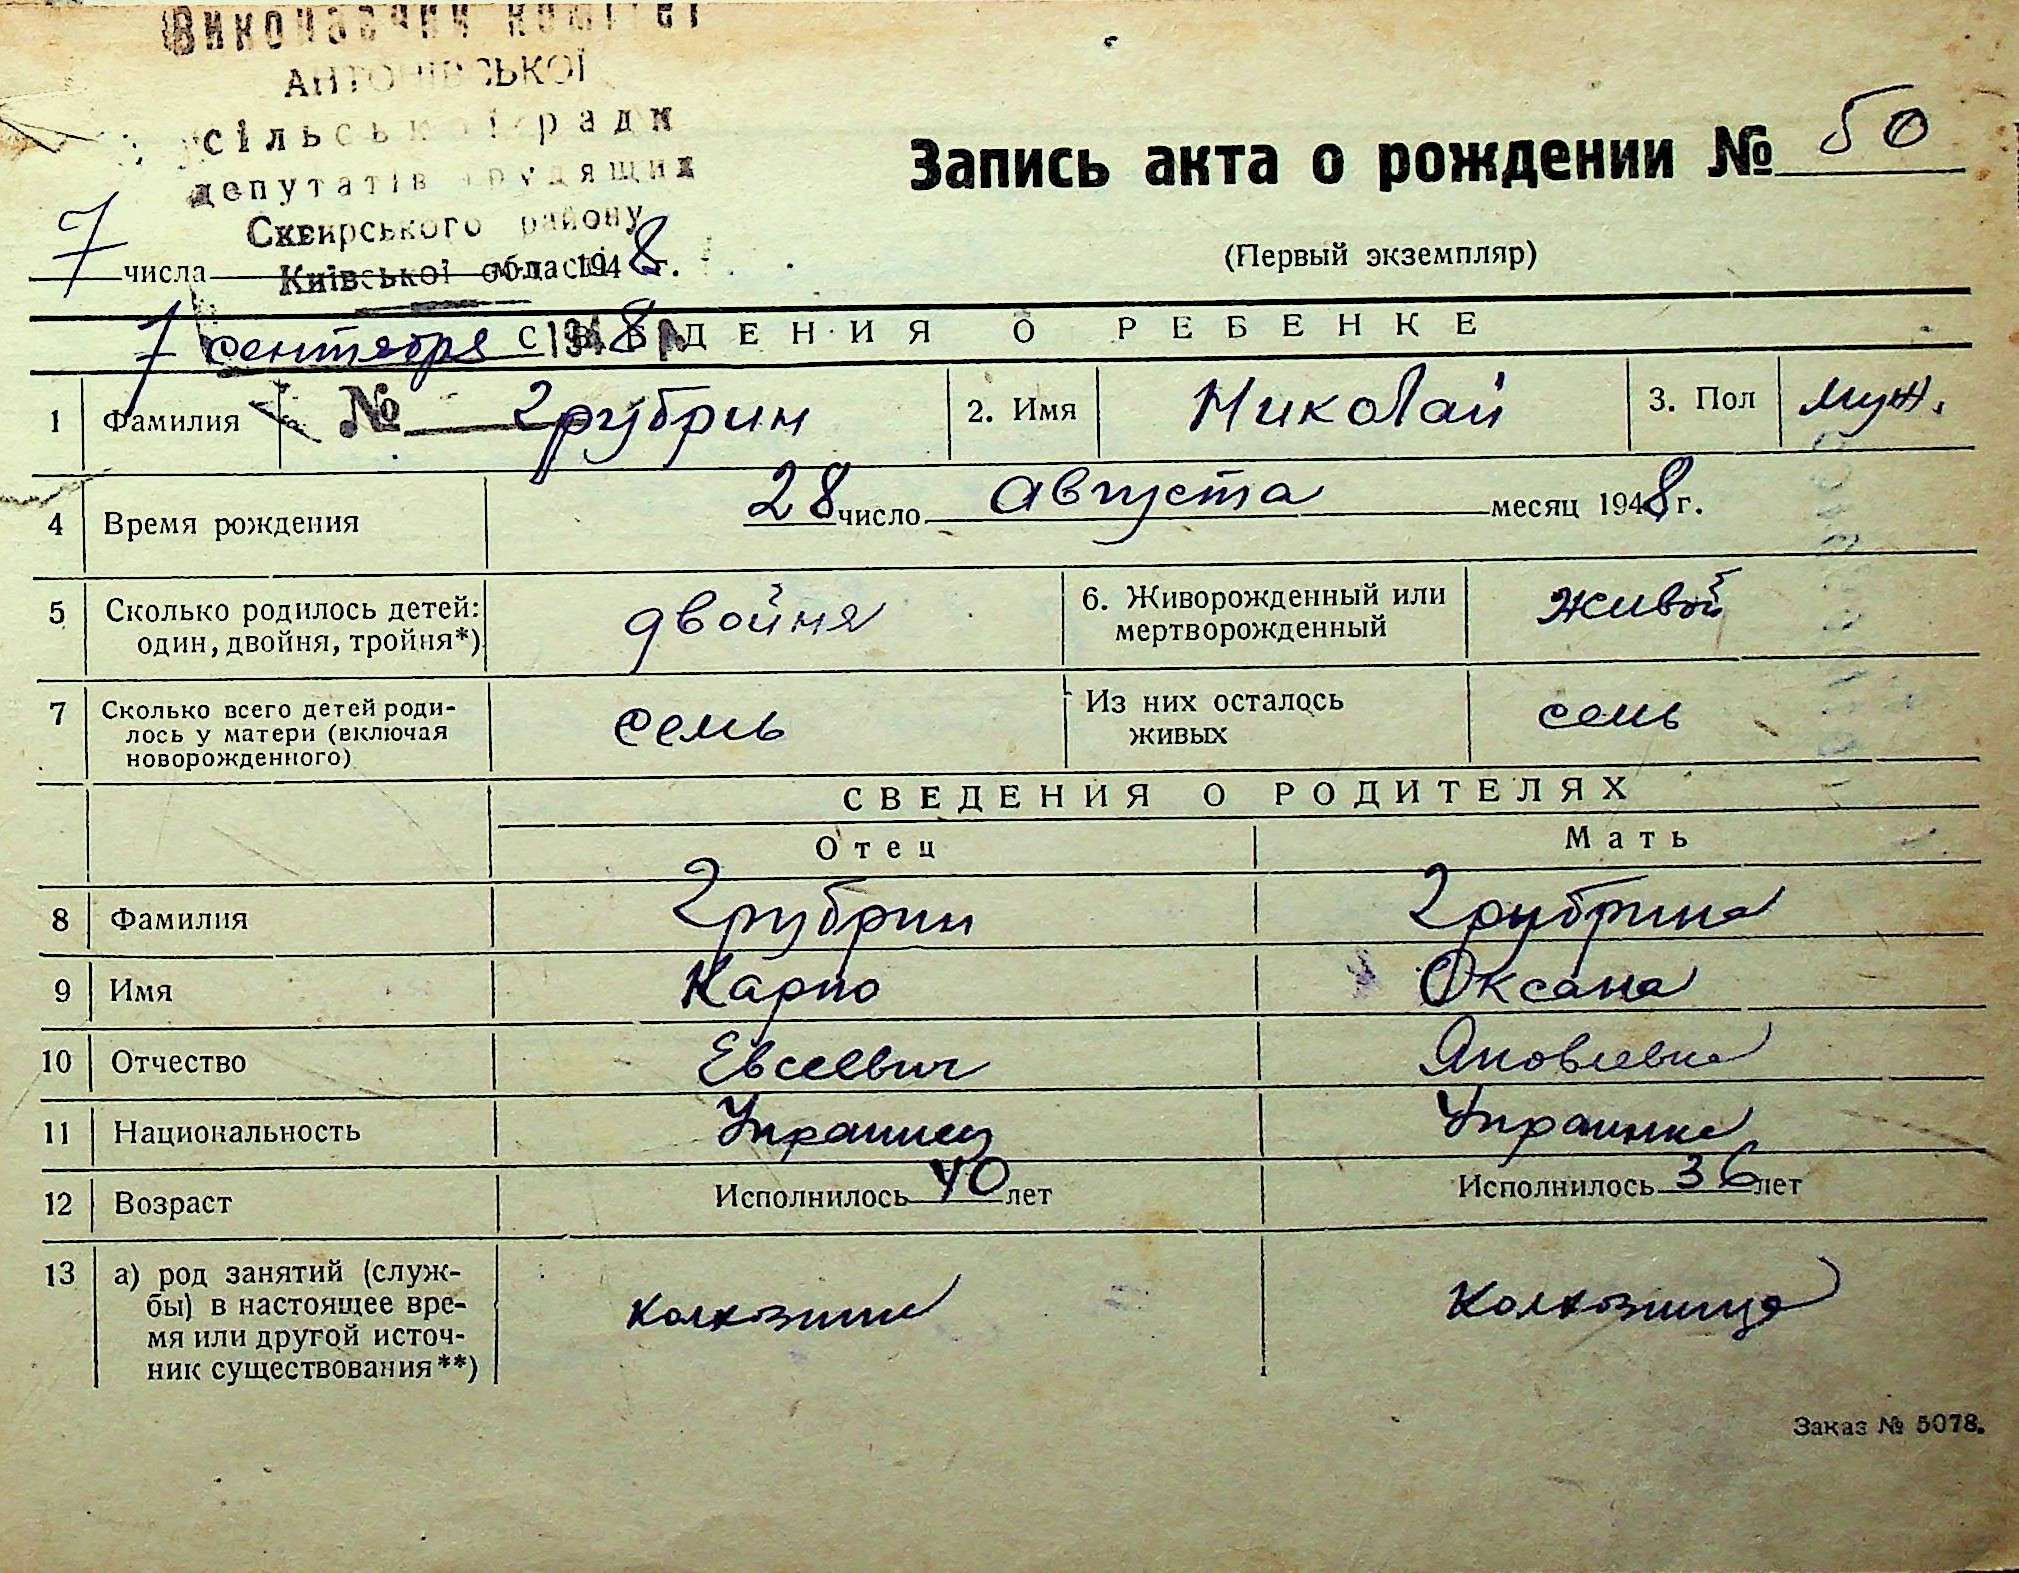 Виконавчий комітет
АНТОНІВСЬКОЇ
сільської ради
депутатів трудящих
Сквирського району
Київської області
7 числа 1948 г.
7 сентября 1948 р
№
Запись акта о рождении № 50
(Первый экземпляр)
СВЕДЕНИЯ О РЕБЕНКЕ
1 Фамилия Грубрин 2. Имя Николай 3. Пол муж.
4 Время рождения 28 число Августа месяц 1948 г.
5 Сколько родилось детей: один, двойня, тройня*) двойня 6. Живорожденный или мертворожденный живой
7 Сколько всего детей роди-
лось у матери (включая
новорожденного) семь Из них осталось живых семь
СВЕДЕНИЯ О РОДИТЕЛЯХ
Отец Мать
8 Фамилия Грубрин Грубрина
9 Имя Карпо Оксана
10 Отчество Евсеевич Яковлевна
11 Национальность Украинец Украинка
12 Возраст Исполнилось 40 лет Исполнилось 36 лет
13 а) род занятий (служ-
бы) в настоящее вре-
мя или другой источ-
ник существования**) колхозник колхозница
Заказ № 5078.